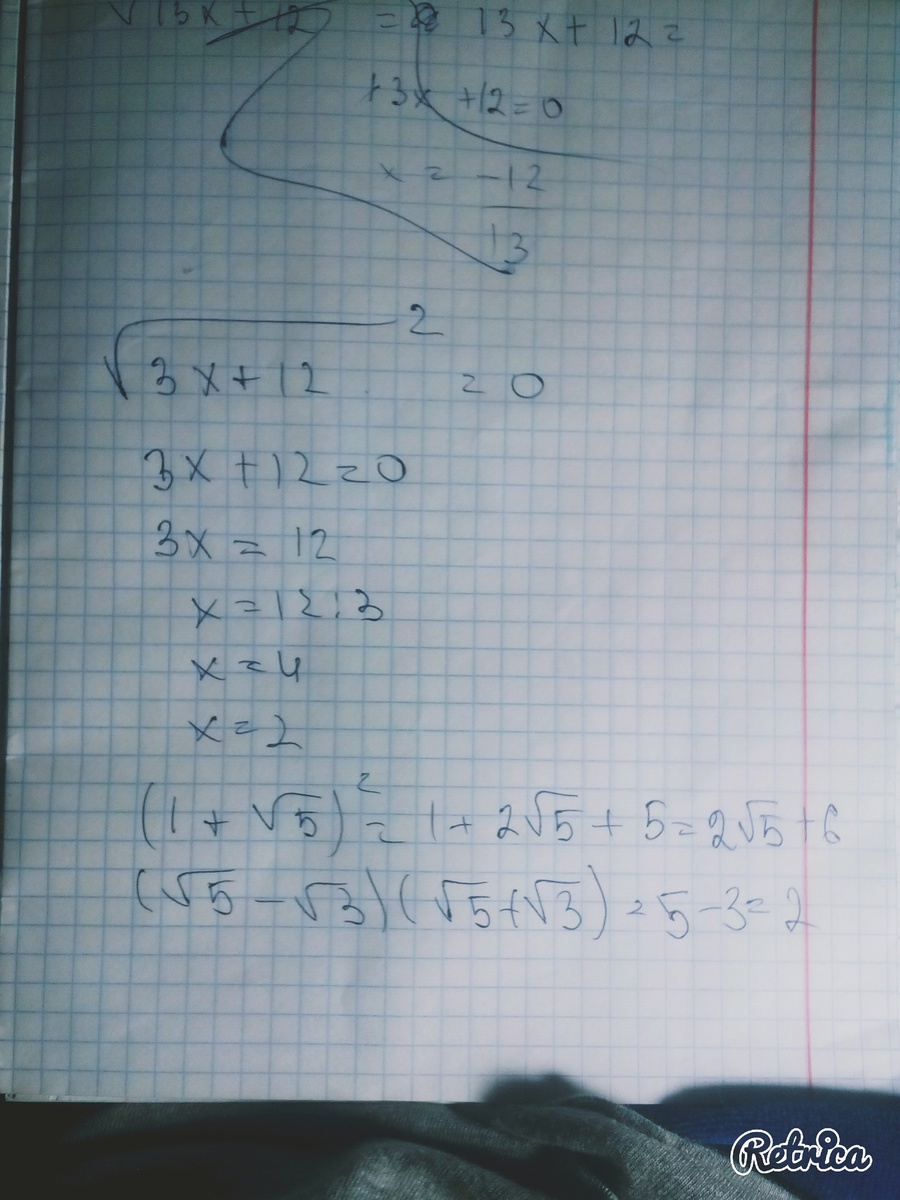 √13x + 12 = 13x + 12 =
13x + 12 = 0
x = -12
13
2
√3x + 12 = 0
3x + 12 = 0
3x = 12
x = 12:3
x = 4
x = 2
(1 + √5)² = 1 + 2√5 + 5 = 2√5 + 6
(√5 - √3)(√5 + √3) = 5 - 3 = 2
Retrica